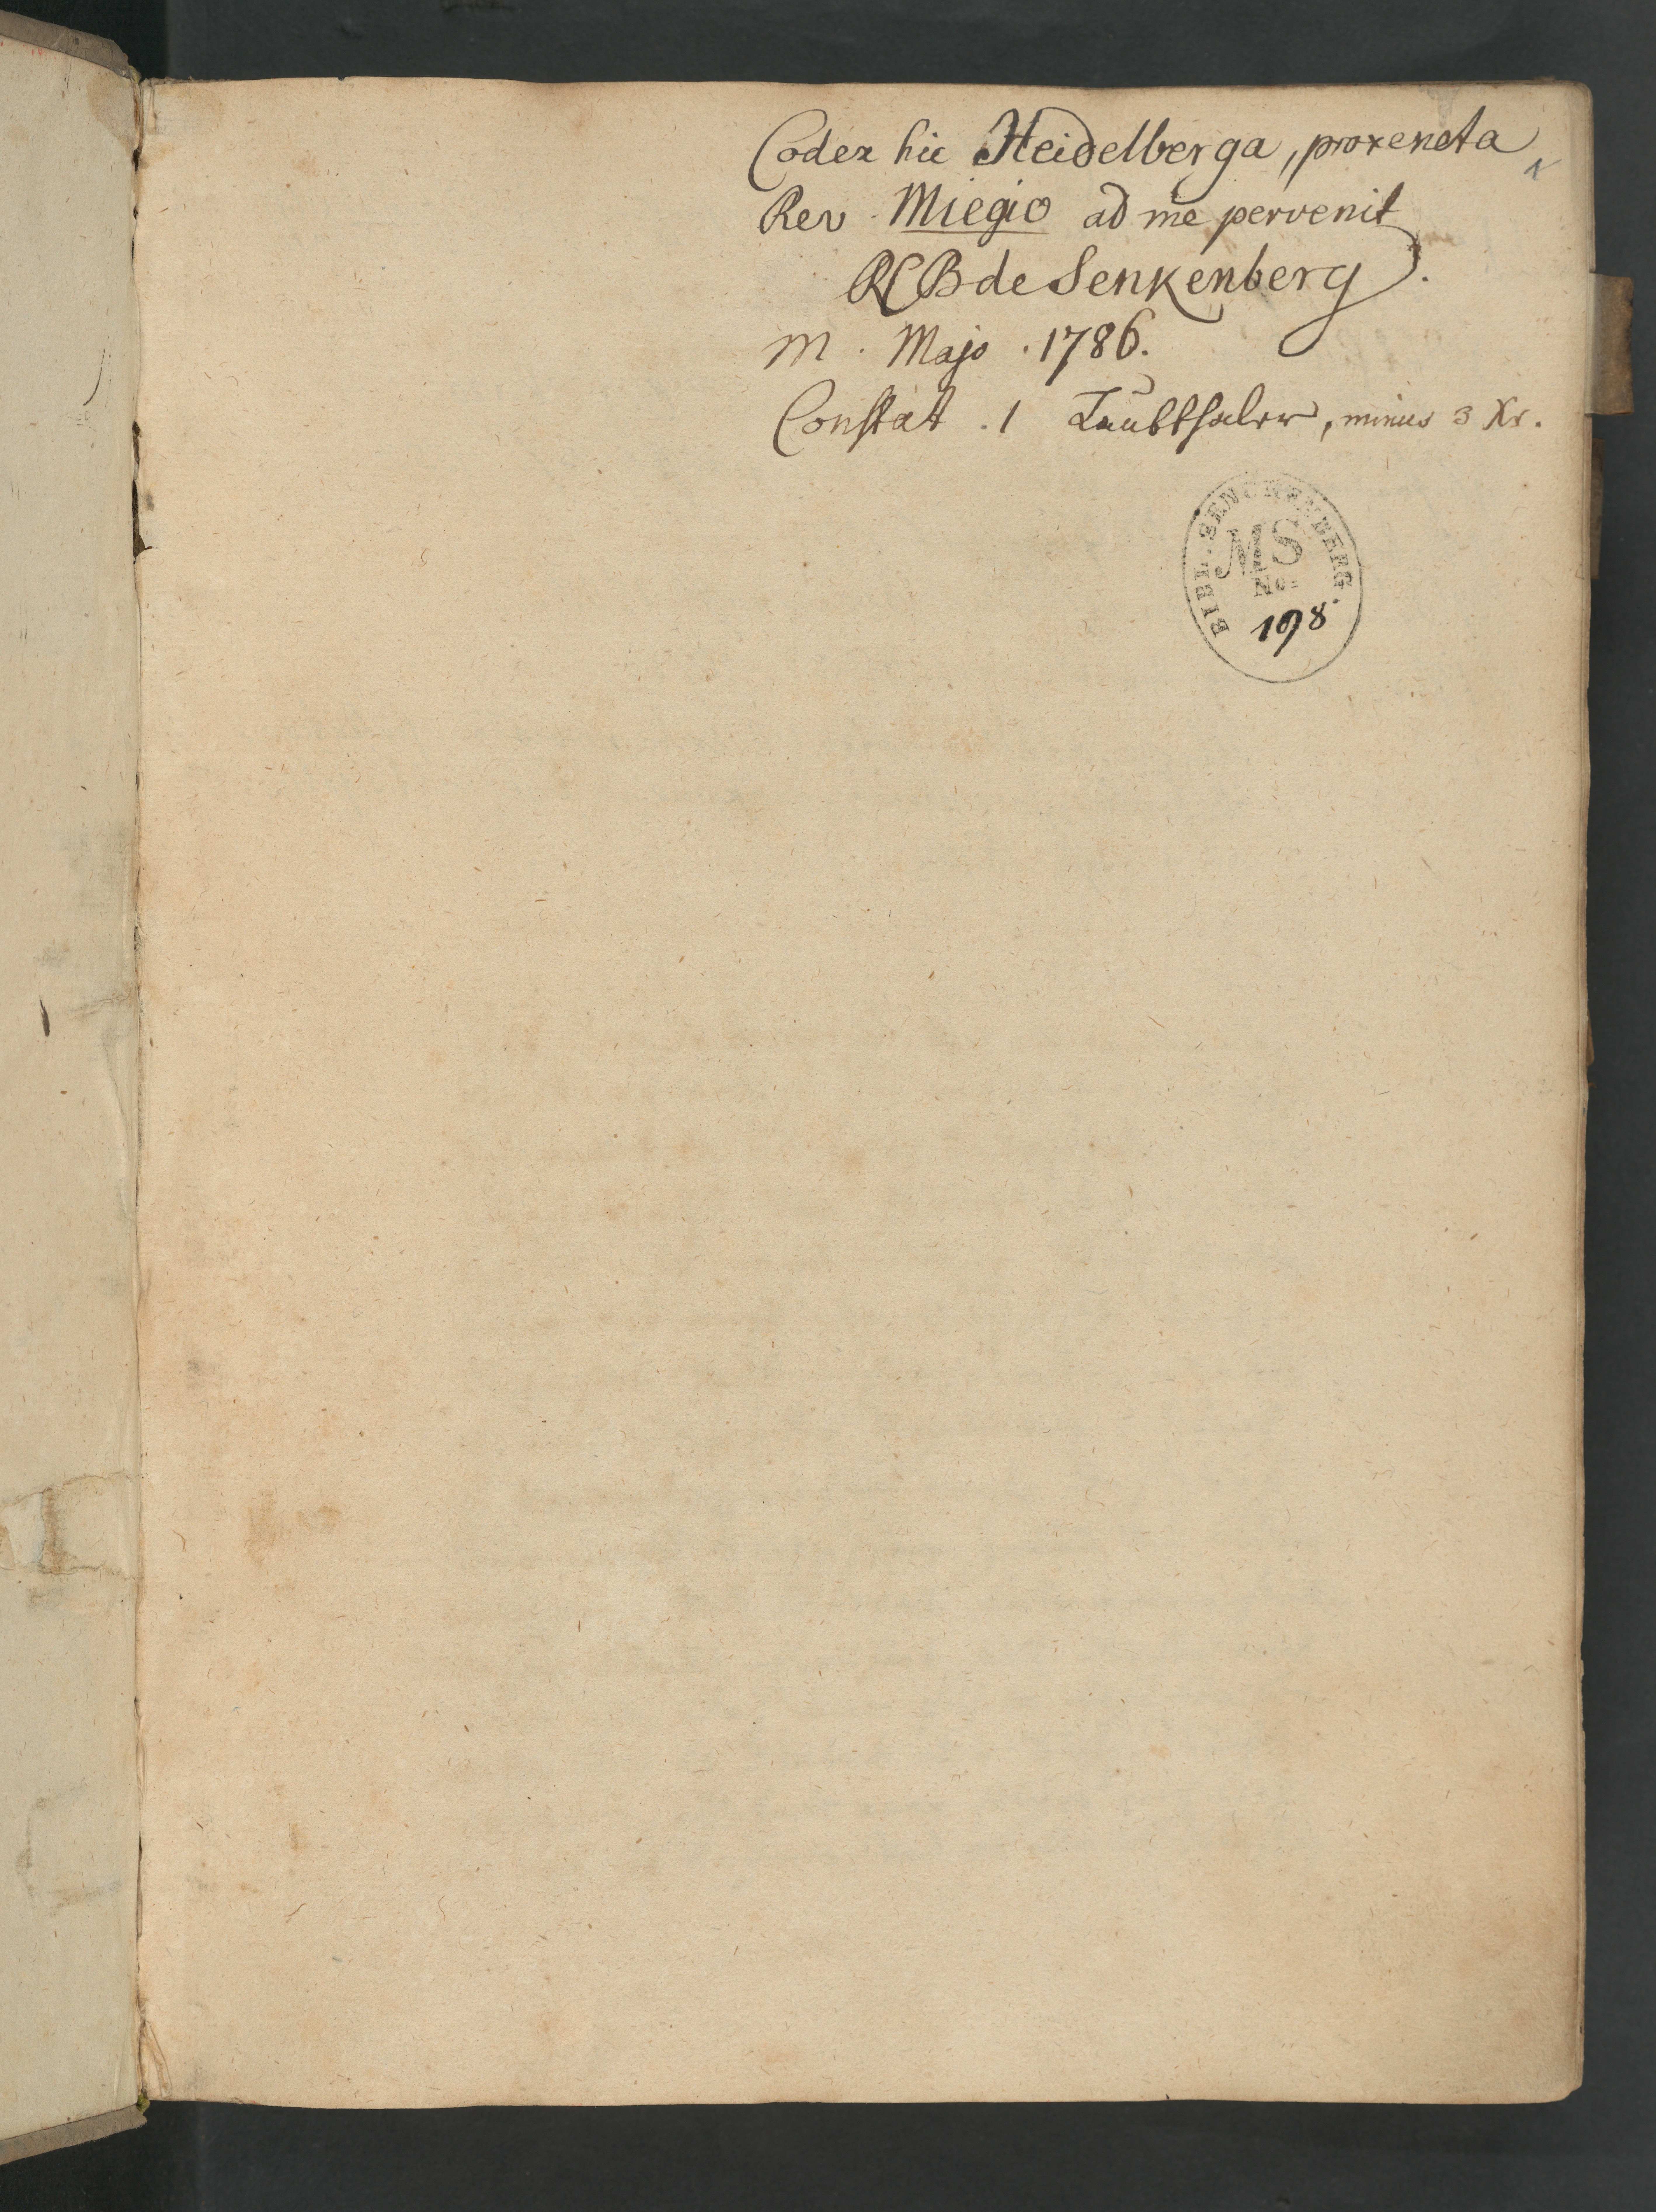 Codex hic Heidelberga, proxeneta
Rev. Miegio ad me pervenit
RCB de Senkenberg.
M. Majo. 1786.
Constat. 1 Laubthaler, minus 3 Xr.
BIBL. SENCKENBERG.
MS
No.
198